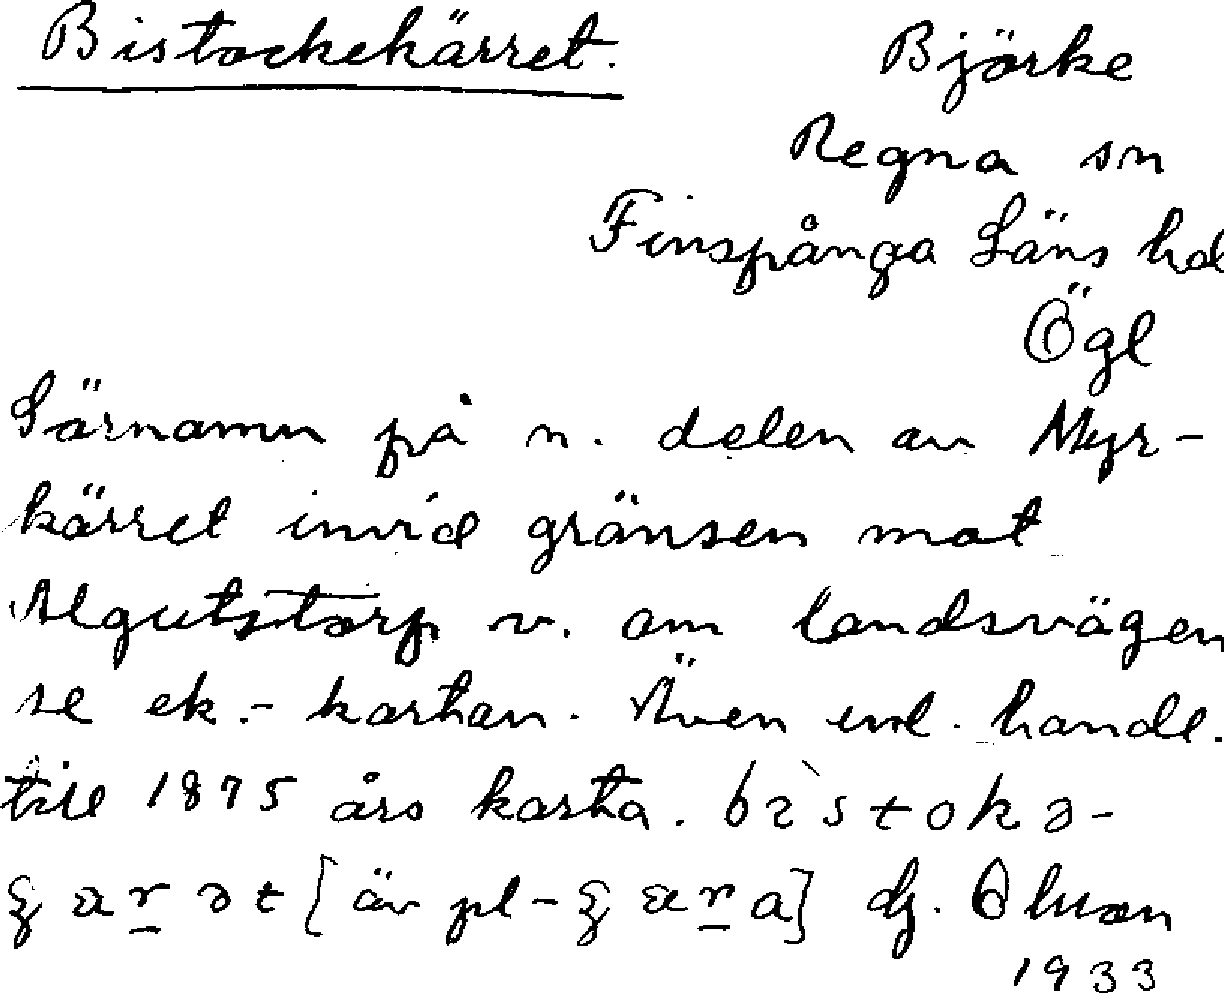 Bistockekärret.
Björke
Regna sn
Finspånga Läns hd
Ögl
Särnamn på n. delen av Myr-
kärret invid gränsen mot
Algutstorp v. om landsvägen
se ek.- kartan. Även enl. handl.
till 1875 års karta. bìstokə-
ær̲ət [äv pl- ær̲a]
1933